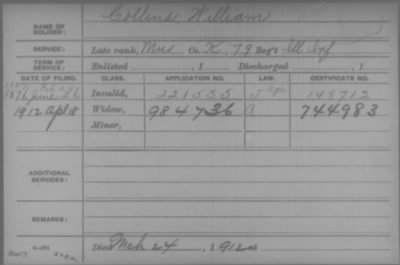 Collins William
NAME OF SOLDIER:
SERVICE: Late rank, Mus Co. K, 79 Reg't Ill Inf
TERM OF SERVICE: Enlisted , 1 Discharged , 1
DATE OF FILING. CLASS. APPLICATION NO. LAW. CERTIFICATE NO.
1876 June 26 Invalid, 221555 age 148712
1912 Apl 18 Widow, 984736 744983
Minor,
ADDITIONAL SERVICES:
REMARKS:
Died Mch 24, 1912